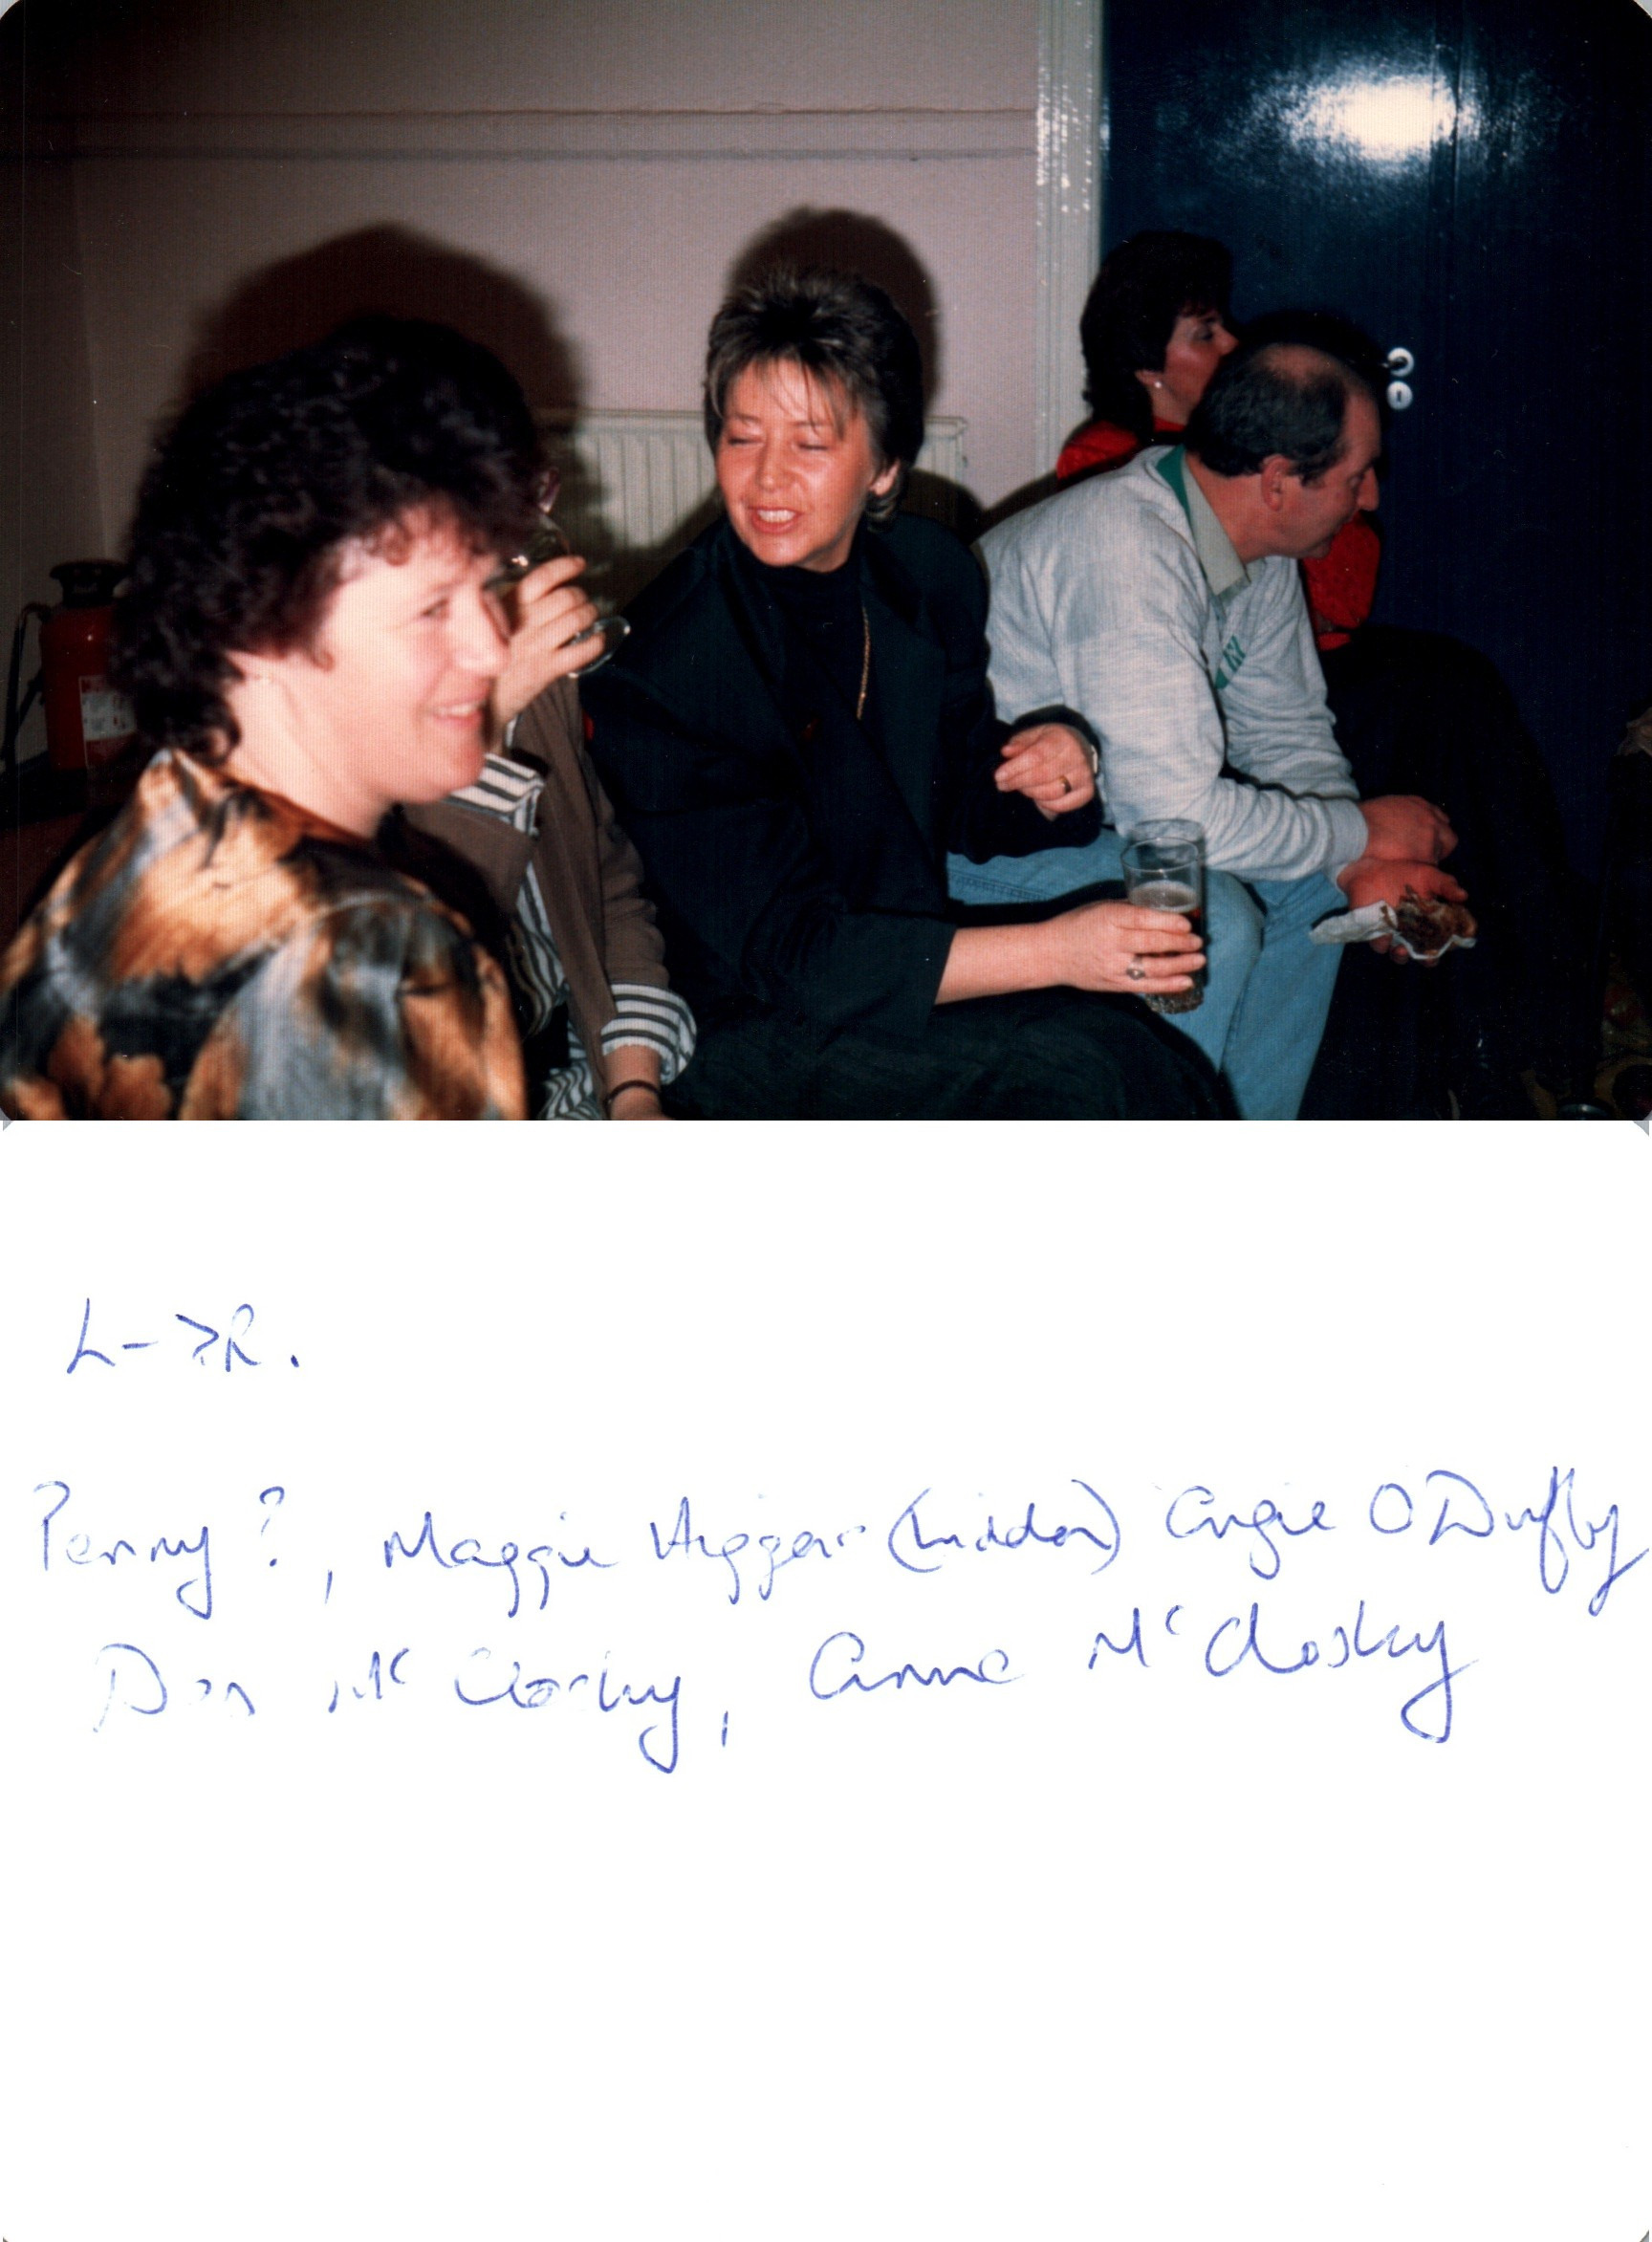 L->R.
Penny?, Maggie Higgar (hidden) Angie O Duffy
Don Mc Closky, Anne Mc Closky